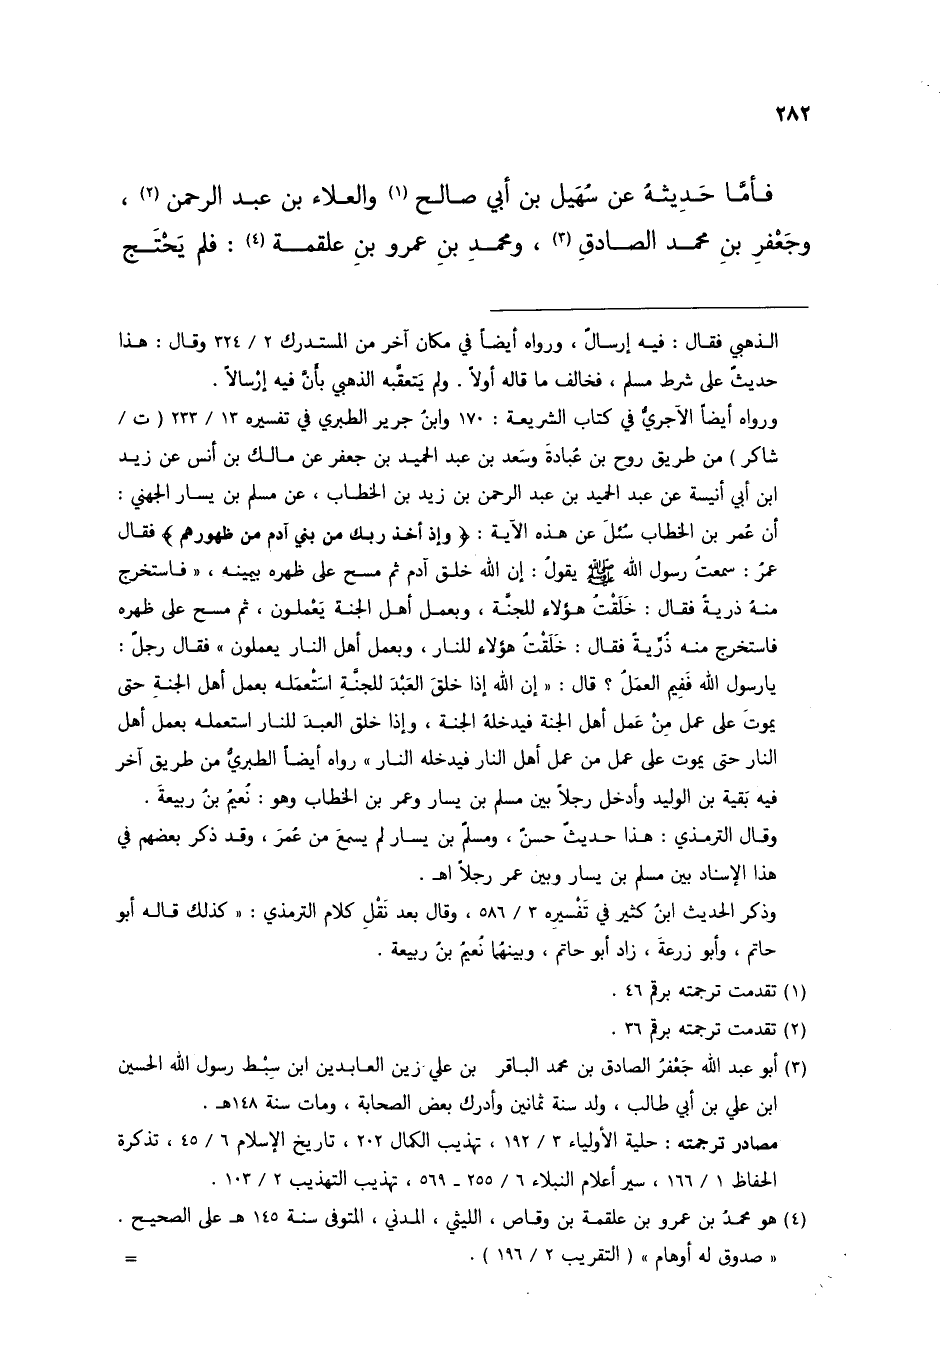 ٢٨٢
فأمَّا حَدِيثهُ عن سُهَيل بن أبي صالح (١) والعلاء بن عبد الرحمن (٢) ،
وجَعْفرِ بنِ محمد الصادقِ (٣) ، ومحمدِ بنِ عمرو بنِ علقمة (٤) : فلم يَحْتَج
الذهبي فقال : فيه إرسالٌ ، ورواه أيضاً في مكان آخر من المستدرك ٢ / ٣٢٤ وقال : هذا
حديثٌ على شرط مسلم ، فخالف ما قاله أولاً . ولم يَتعقَّبه الذهبي بأنَّ فيه إرْسالاً .
ورواه أيضاً الآجريُّ في كتاب الشريعة : ١٧٠ وابنُ جرير الطبري في تفسيره ١٣ / ٢٣٣ ( ت /
شاكر ) من طريق روح بن عُبادةَ وسَعد بن عبد الحميد بن جعفر عن مالك بن أنس عن زيد
ابن أبي أنيسة عن عبد الحميد بن عبد الرحمن بن زيد بن الخطاب ، عن مسلم بن يسار الجهني :
أن عُمر بن الخطاب سُئلَ عن هذه الآية : ﴿ وإذ أخذ ربك من بني آدم من ظهورهم ﴾ فقال
عمرُ : سمعتُ رسول الله ﷺ يقولُ : إن الله خلق آدم ثم مسح على ظهره بيمينه ، « فاستخرج
منهُ ذريةً فقال : خَلَقْتُ هؤلاء للجنَّة ، وبعمل أهل الجنة يَعْملون ، ثم مسح على ظهره
فاستخرج منه ذُرِّيةً فقال : خَلَقْتُ هؤلاء للنار ، وبعمل أهل النار يعملون » فقال رجلٌ :
يارسول الله فَفِيم العمَلُ ؟ قال : « إن الله إذا خلقَ العَبْدَ للجنَّةِ اسْتْعمَله بعمل أهل الجنةِ حتى
يموتَ على عمل مِنْ عَمل أهل الجنة فيدخلهُ الجنة ، وإذا خلق العبدَ للنار استعمله بعمل أهل
النار حتى يموت على عمل من عمل أهل النار فيدخله النار » رواه أيضاً الطبريُّ من طريق آخر
فيه بَقية بن الوليد وأدخل رجلاً بين مسلم بن يسار وعمر بن الخطاب وهو : نُعيمُ بنُ ربيعةَ .
وقال الترمذي : هذا حديثٌ حسنٌ ، ومسلمُ بن يسار لم يسمعْ من عُمرَ ، وقد ذكر بعضهم في
هذا الإسناد بين مسلم بن يسار وبين عمر رجلاً اهـ .
وذكر الحديث ابنُ كثير في تَفْسيره ٣ / ٥٨٦ ، وقال بعد نَقْلِ كلام الترمذي : « كذلك قاله أبو
حاتم ، وأبو زرعةَ ، زاد أبو حاتم ، وبينهُما نُعيمُ بنُ ربيعة .
(١) تقدمت ترجمته برقم ٤٦ .
(٢) تقدمت ترجمته برقم ٣٦ .
(٣) أبو عبد الله جَعْفرُ الصادق بن محمد الباقر بن علي زين العابدين ابن سِبْط رسول الله الحسين
ابن علي بن أبي طالب ، ولد سنة ثمانين وأدرك بعض الصحابة ، ومات سنة ١٤٨هـ .
مصادر ترجمته : حلية الأولياء ٣ / ١٩٢ ، تهذيب الكمال ٢٠٢ ، تاريخ الإسلام ٦ / ٤٥ ، تذكرة
الحفاظ ١ / ١٦٦ ، سير أعلام النبلاء ٦ / ٢٥٥ ـ ٥٦٩ ، تهذيب التهذيب ٢ / ١٠٣ .
(٤) هو محمدُ بن عمرو بن علقمة بن وقاص ، الليثي ، المدني ، المتوفى سنة ١٤٥ هـ على الصحيح .
« صدوق له أوهام » ( التقريب ٢ / ١٩٦ ) . =